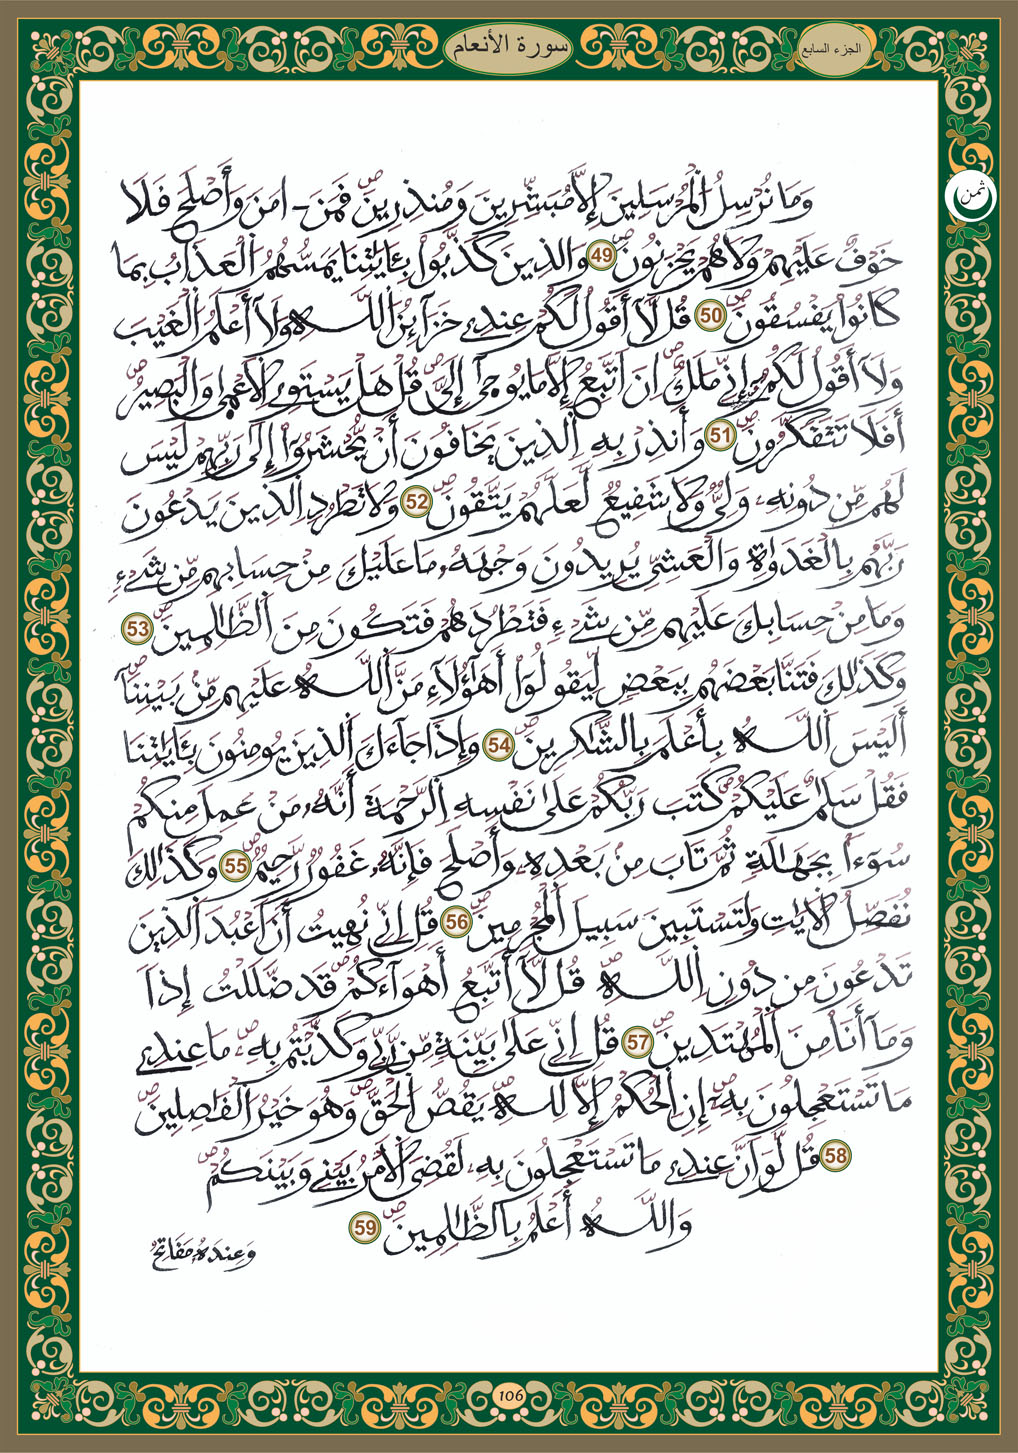 سورة الأنعام
الجزء السابع
ثمن
وَمَا نُرْسِلُ الْمُرْسَلِينَ إِلَّا مُبَشِّرِينَ وَمُنذِرِينَ فَمَنَ ـ امَنَ وَأَصْلَحَ فَلَا
خَوْفٌ عَلَيْهِمْ وَلَا هُمْ يَحْزَنُونَ 49 وَالذِينَ كَذَّبُوا بِـَٔايَٰتِنَا يَمَسُّهُمُ الْعَذَابُ بِمَا
كَانُوا يَفْسُقُونَ 50 قُل لَّا أَقُولُ لَكُمْ عِندِے خَزَآئِنُ اللَّهِ وَلَا أَعْلَمُ الْغَيْبَ
وَلَا أَقُولُ لَكُمُ إِنِّي مَلَكٌ اِنَ اَتَّبِعُ إِلَّا مَا يُوحَىٰ إِلَيَّ قُلْ هَلْ يَسْتَوِے الْأَعْمَىٰ وَالْبَصِيرُ
أَفَلَا تَتَفَكَّرُونَ 51 وَأَنذِرْ بِهِ الذِينَ يَخَافُونَ أَنْ يُّحْشَرُوا إِلَىٰ رَبِّهِمْ لَيْسَ
لَهُم مِّن دُونِهِ وَلِيٌّ وَلَا شَفِيعٌ لَّعَلَّهُمْ يَتَّقُونَ 52 وَلَا تَطْرُدِ الذِينَ يَدْعُونَ
رَبَّهُم بِالْغَدَوٰةِ وَالْعَشِيِّ يُرِيدُونَ وَجْهَهُ مَا عَلَيْكَ مِنْ حِسَابِهِم مِّن شَےْءٍ
وَمَا مِنْ حِسَابِكَ عَلَيْهِم مِّن شَےْءٍ فَتَطْرُدَهُمْ فَتَكُونَ مِنَ الظَّٰلِمِينَ 53
وَكَذَٰلِكَ فَتَنَّا بَعْضَهُم بِبَعْضٍ لِّيَقُولُوا أَهَٰؤُلَاءِ مَنَّ اللَّهُ عَلَيْهِم مِّنۢ بَيْنِنَا
أَلَيْسَ اللَّهُ بِأَعْلَمَ بِالشَّٰكِرِينَ 54 وَإِذَا جَاءَكَ الذِينَ يُومِنُونَ بِـَٔايَٰتِنَا
فَقُلْ سَلَٰمٌ عَلَيْكُمْ كَتَبَ رَبُّكُمْ عَلَىٰ نَفْسِهِ الرَّحْمَةَ أَنَّهُ مَنْ عَمِلَ مِنكُمْ
سُوءاً بِجَهَٰلَةٍ ثُمَّ تَابَ مِنۢ بَعْدِهِ وَأَصْلَحَ فَإِنَّهُ غَفُورٌ رَّحِيمٌ 55 وَكَذَٰلِكَ
نُفَصِّلُ الْأيَٰتِ وَلِتَسْتَبِينَ سَبِيلَ الْمُجْرِمِينَ 56 قُلِ اِنِّي نُهِيتُ أَنَ اَعْبُدَ الذِينَ
تَدْعُونَ مِن دُونِ اللَّهِ قُل لَّا أَتَّبِعُ أَهْوَآءَكُمْ قَد ضَّلَلْتُ إِذاً
وَمَا أَنَا مِنَ الْمُهْتَدِينَ 57 قُلِ اِنِّي عَلَىٰ بَيِّنَةٍ مِّن رَّبِّي وَكَذَّبْتُم بِهِ مَا عِندِے
مَا تَسْتَعْجِلُونَ بِهِ إِنِ الْحُكْمُ إِلَّا لِلَّهِ يَقُصُّ الْحَقَّ وَهُوَ خَيْرُ الْفَٰصِلِينَ
58 قُل لَّوَ اَنَّ عِندِے مَا تَسْتَعْجِلُونَ بِهِ لَقُضِيَ الْأَمْرُ بَيْنِے وَبَيْنَكُمْ
وَاللَّهُ أَعْلَمُ بِالظَّٰلِمِينَ 59
وَعِندَهُ مَفَاتِحُ
106